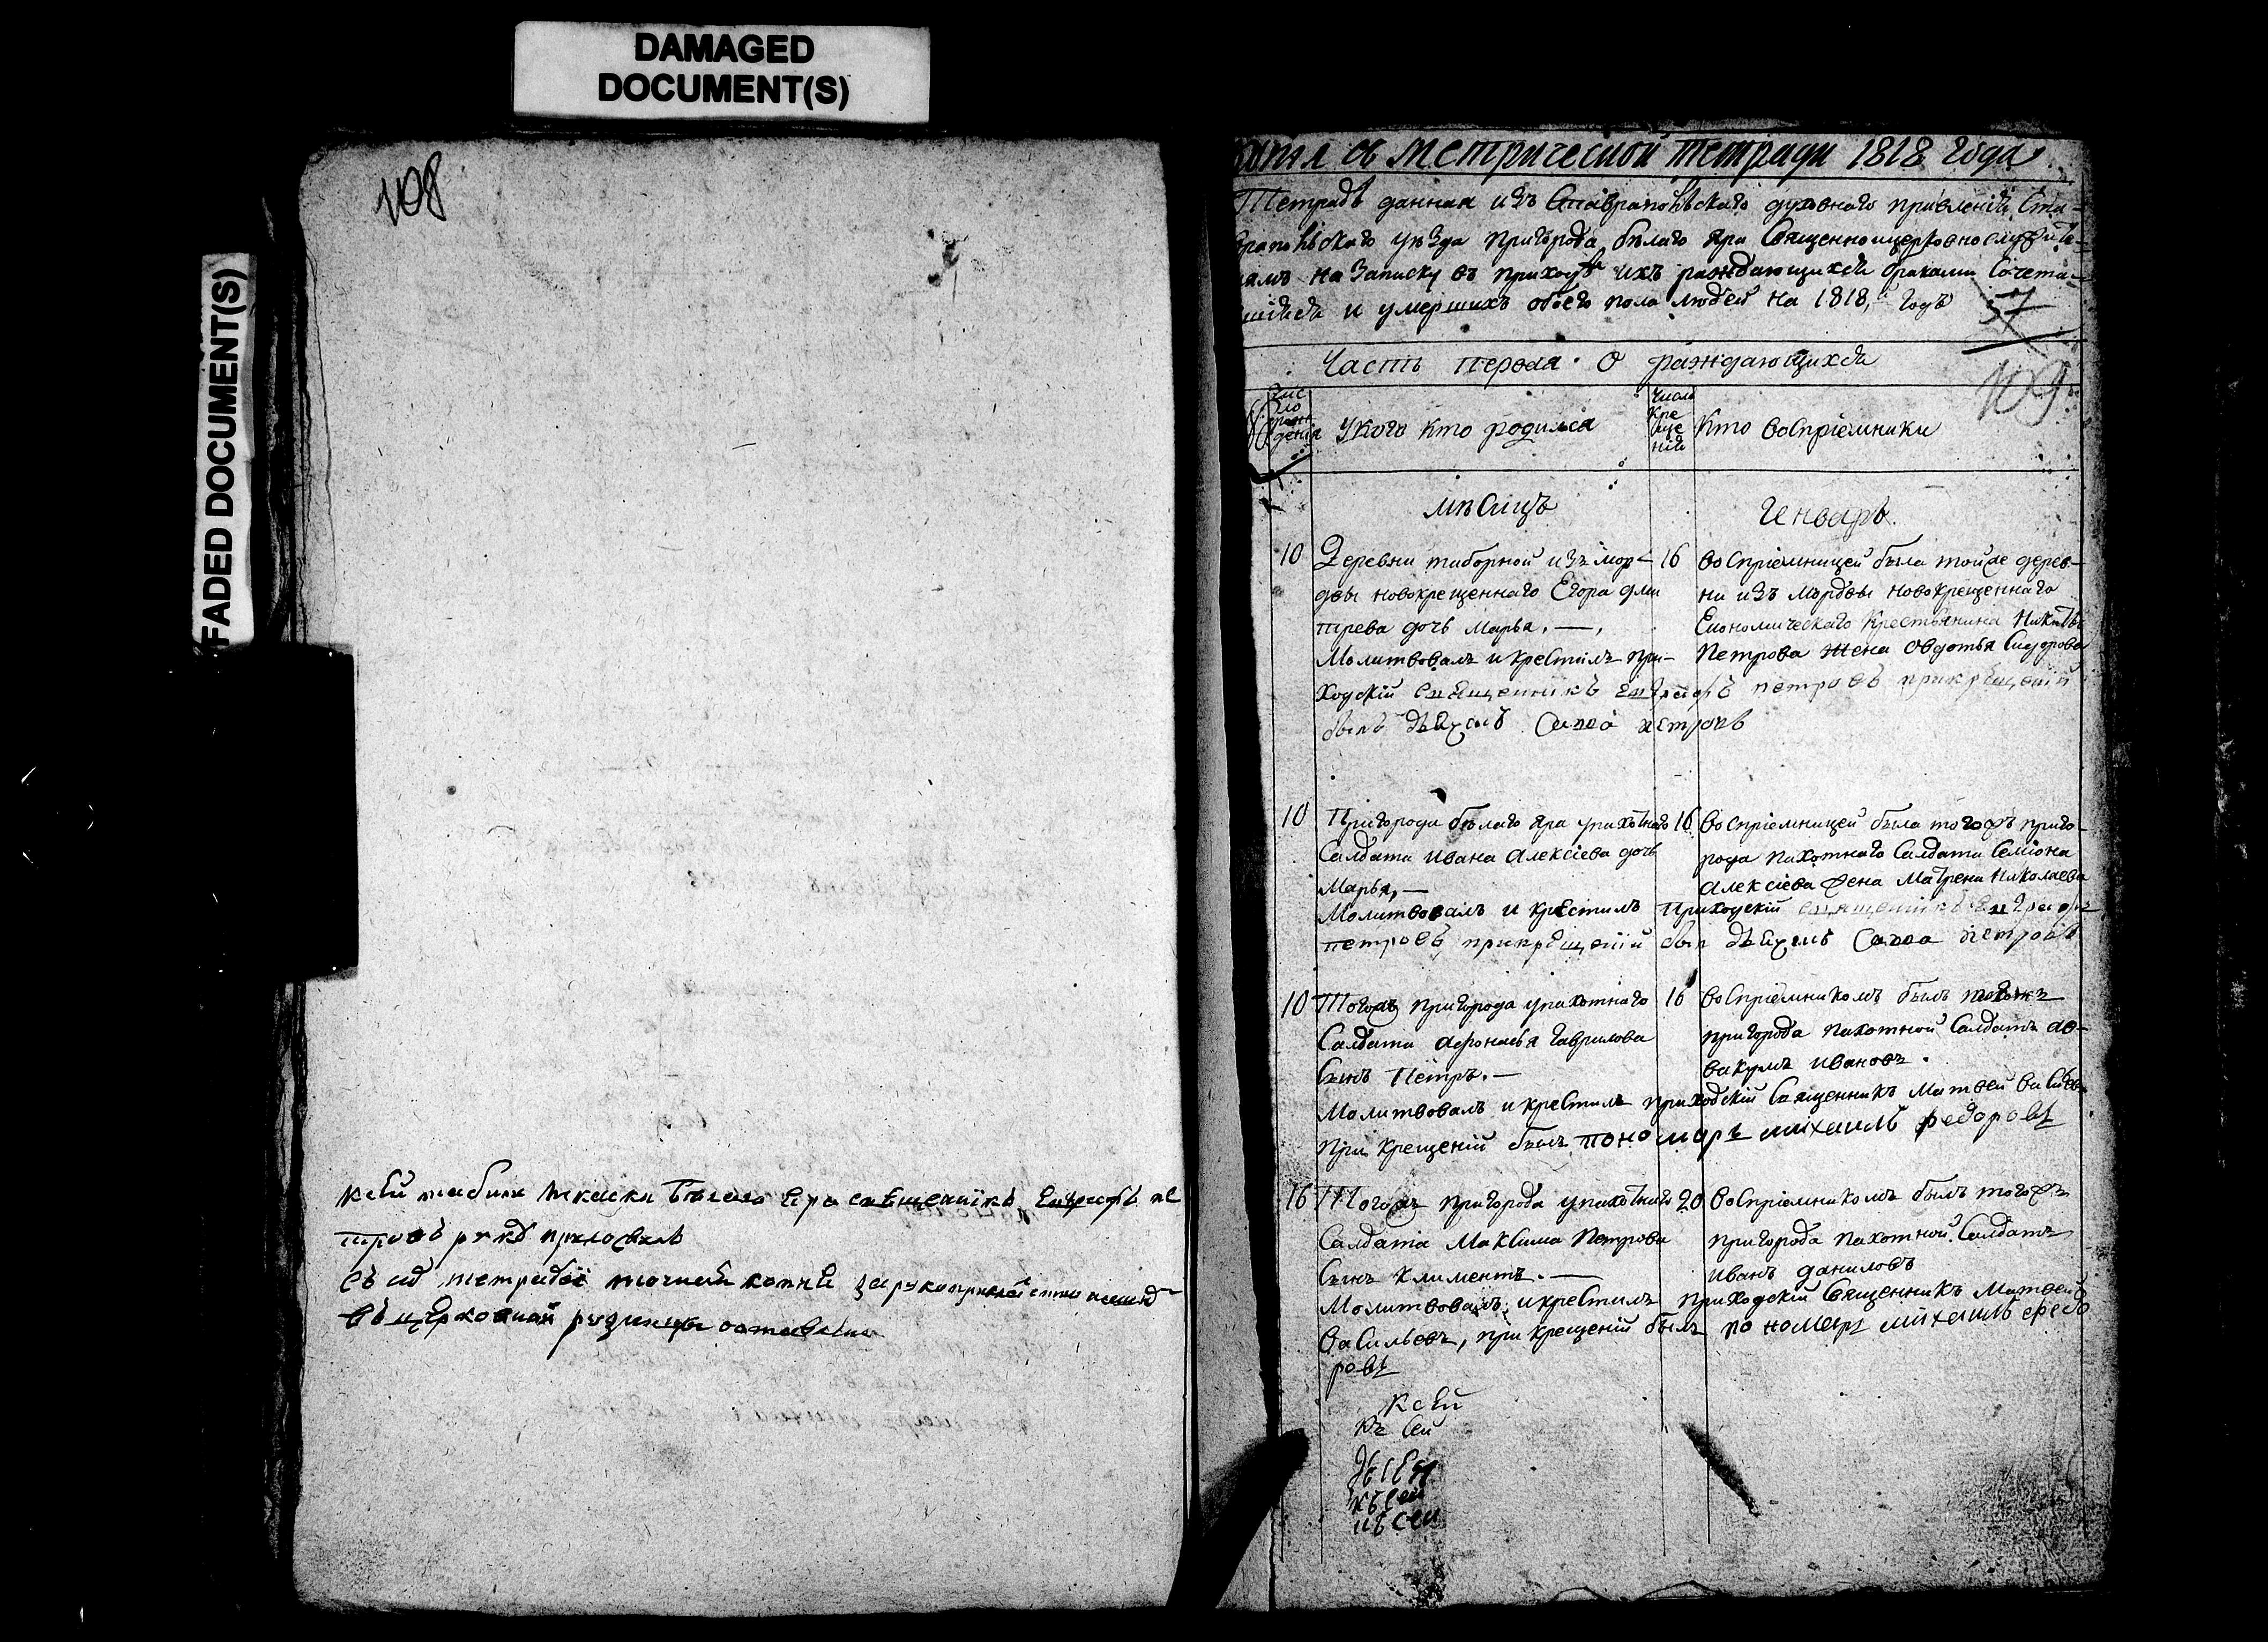 DAMAGED
DOCUMENT(S)
FADED DOCUMENT(S)
108
къ сей табели
священникъ Евграфъ пе
тровъ руку приложилъ
съ сей тетради точная копия за рукоприкладствомъ
въ церковной ризнице оставлена
копия съ метрической тетради 1818 года
Тетрадь данная изъ Ставропольскаго духовнаго правленія Ста-
вропольскаго уѣзда пригорода бѣлаго Яра Священноицерковнослужите-
лямъ на записку въ приходѣ ихъ раждающихся браками Сочета-
вшихся и умершихъ обоего пола людей на 1818,й годъ
57
109
Часть первая О раждающихся
Число рождения
У кого кто родился
Число Крещения
Кто воспріемники
мѣсяцъ Генварь.
10 Деревни таборной изъ мор-
двы новокрещеннаго Егора дми
трева дочь Марья. —
Молитвовалъ и крестилъ при-
ходскій священникъ Евграфъ петровъ при крещеніи
былъ дьяконъ Савва петровъ
16 воспріемницей была тойже дерев-
ни изъ мордвы новокрещеннаго
Економическаго крестьянина Никиты
Петрова жена Овдотья Сидорова
10 Пригорода бѣлаго Яра упахотнаго
Салдата Ивана Алексіева дочь
Марья, —
Молитвовалъ и крестилъ Приходскій священникъ Евграфъ
петровъ при крещеніи был дьяконъ Савва петровъ
16 воспріемницей была тогожъ приго-
рода пахотнаго Салдата Семіона
Алексіева жена Матрена Николаева
10 Тогожъ пригорода упахотнаго
Салдата Афонасья Гаврилова
Сынъ Петръ. —
Молитвовалъ и крестилъ приходскій Священникъ Матвей Василье
При Крещеній былъ пономарь михаилъ федоровъ
16 воспріемникомъ былъ тогожъ
пригорода пахотной Салдатъ ав-
вакумъ Ивановъ.
16 Тогожъ пригорода упахотнаго
Салдата Максима Петрова
Сынъ Климентъ. —
Молитвовалъ и крестилъ приходскій Священникъ Матвей
Васильевъ, при крещеній былъ пономарь михаилъ федо
ровъ
20 воспріемникомъ былъ тогожъ
пригорода пахотной Салдатъ
Иванъ даниловъ
к сей
къ сей
къ сей
къ сей